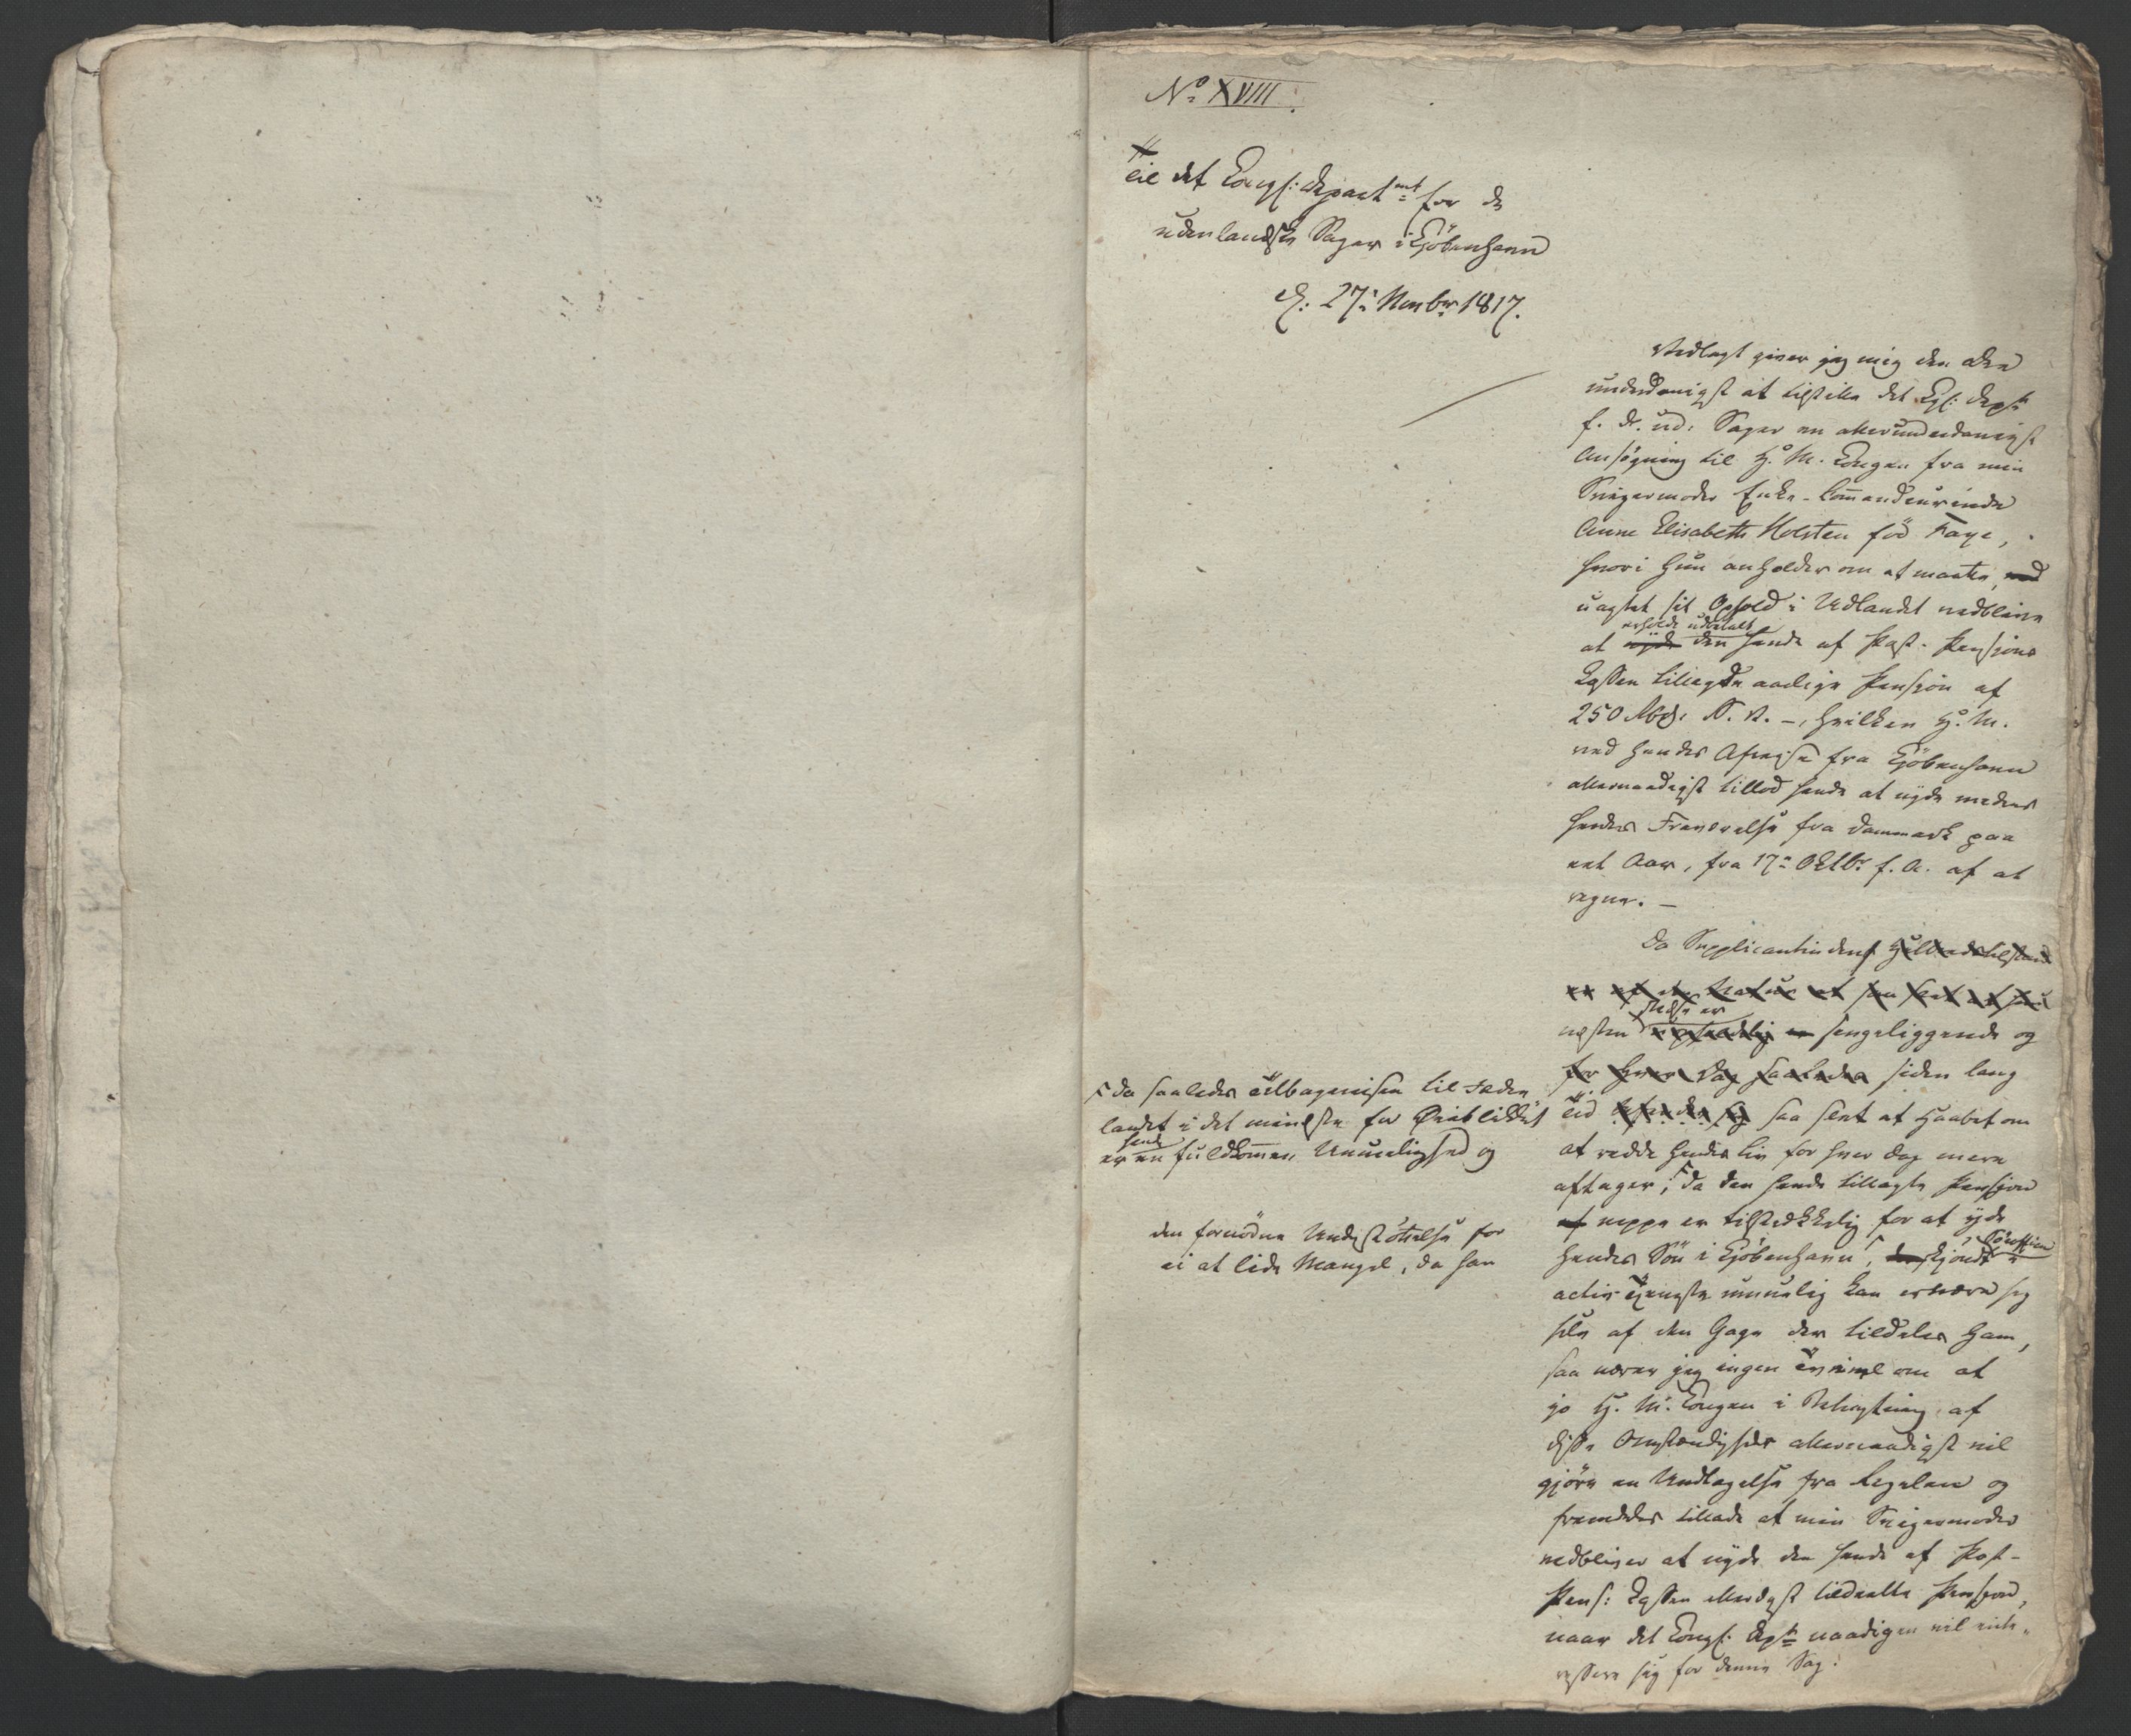 No XVIII.
Til det Kongl: Departmt for de
udenlandske Sager i Kjöbenhavn
d: 27: Novbr 1817.
Vedlagt giver jeg mig den Ære
underdanigst at tilstille det Kgl: Dept
f. d. ud: Sager en allerunderdanigst
Ansögning til H. M. Kongen fra min
Svigermoder Enke-Commandeurinde
Anne Elisabeth Holsten föd Faye,
hvori hun anholder om at maatte, med
uagtet sit Ophold i Udlandet vedblive
erholde udbetalt
at nyde den hende af Post-Pensions
Kassen tillagde aarlige Pension af
250 Rbd. N. V. -, hvilken H. M.
ved hendes Afreise fra Kjöbenhavn
allernaadigst tillod hende at nyde under
hendes Fraværelse fra Danmark paa
eet Aar, fra 17: Oktbr f. A. af at
regne. -
Da Supplicantinden Helbredstilstand
er af den Natur at
stedse er
næsten sengeliggende og
for hver Dag saaledes siden lang
Tid saa slet at Haabet om
at redde hendes Liv for hver Dag mere
aftager; da den hende tillagte Pension
af neppe er tilstrækkelig for at yde
hendes Sön i Kjöbenhavn, skjöndt Söofficier
activ Tjeneste umuelig kan ernære sig
selv af den Gage der tildeles ham,
saa nærer jeg ingen Tvivl om at
jo H. M. Kongen i Betragtning af
disse Omstændigheder allernaadigst vil
gjöre en Undtagelse fra Regelen og
fremdeles tillade at min Svigermoder
vedbliver at nyde den hende af Post-
Pens: Kassen allerndgst tildeelte Pension,
naar det Kongl: Dept naadigen vil inte-
ressere sig for denne Sag.
da saaledes Tilbagereisen til Fædre-
landet i det mindste for Öieblikket
hende
er en fuldkommen Umuelighed og
den fornödne Understöttelse for
ei at lide Mangel, da han